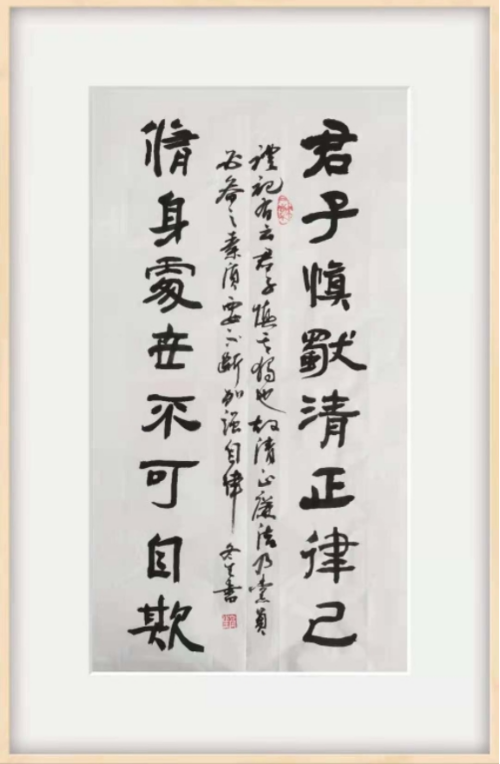 君子慎獨清正律己
禮記有云君子慎其獨也故清正廉潔乃黨員
必備之素質要不斷加强自律
冬生書
脩身處世不可自欺